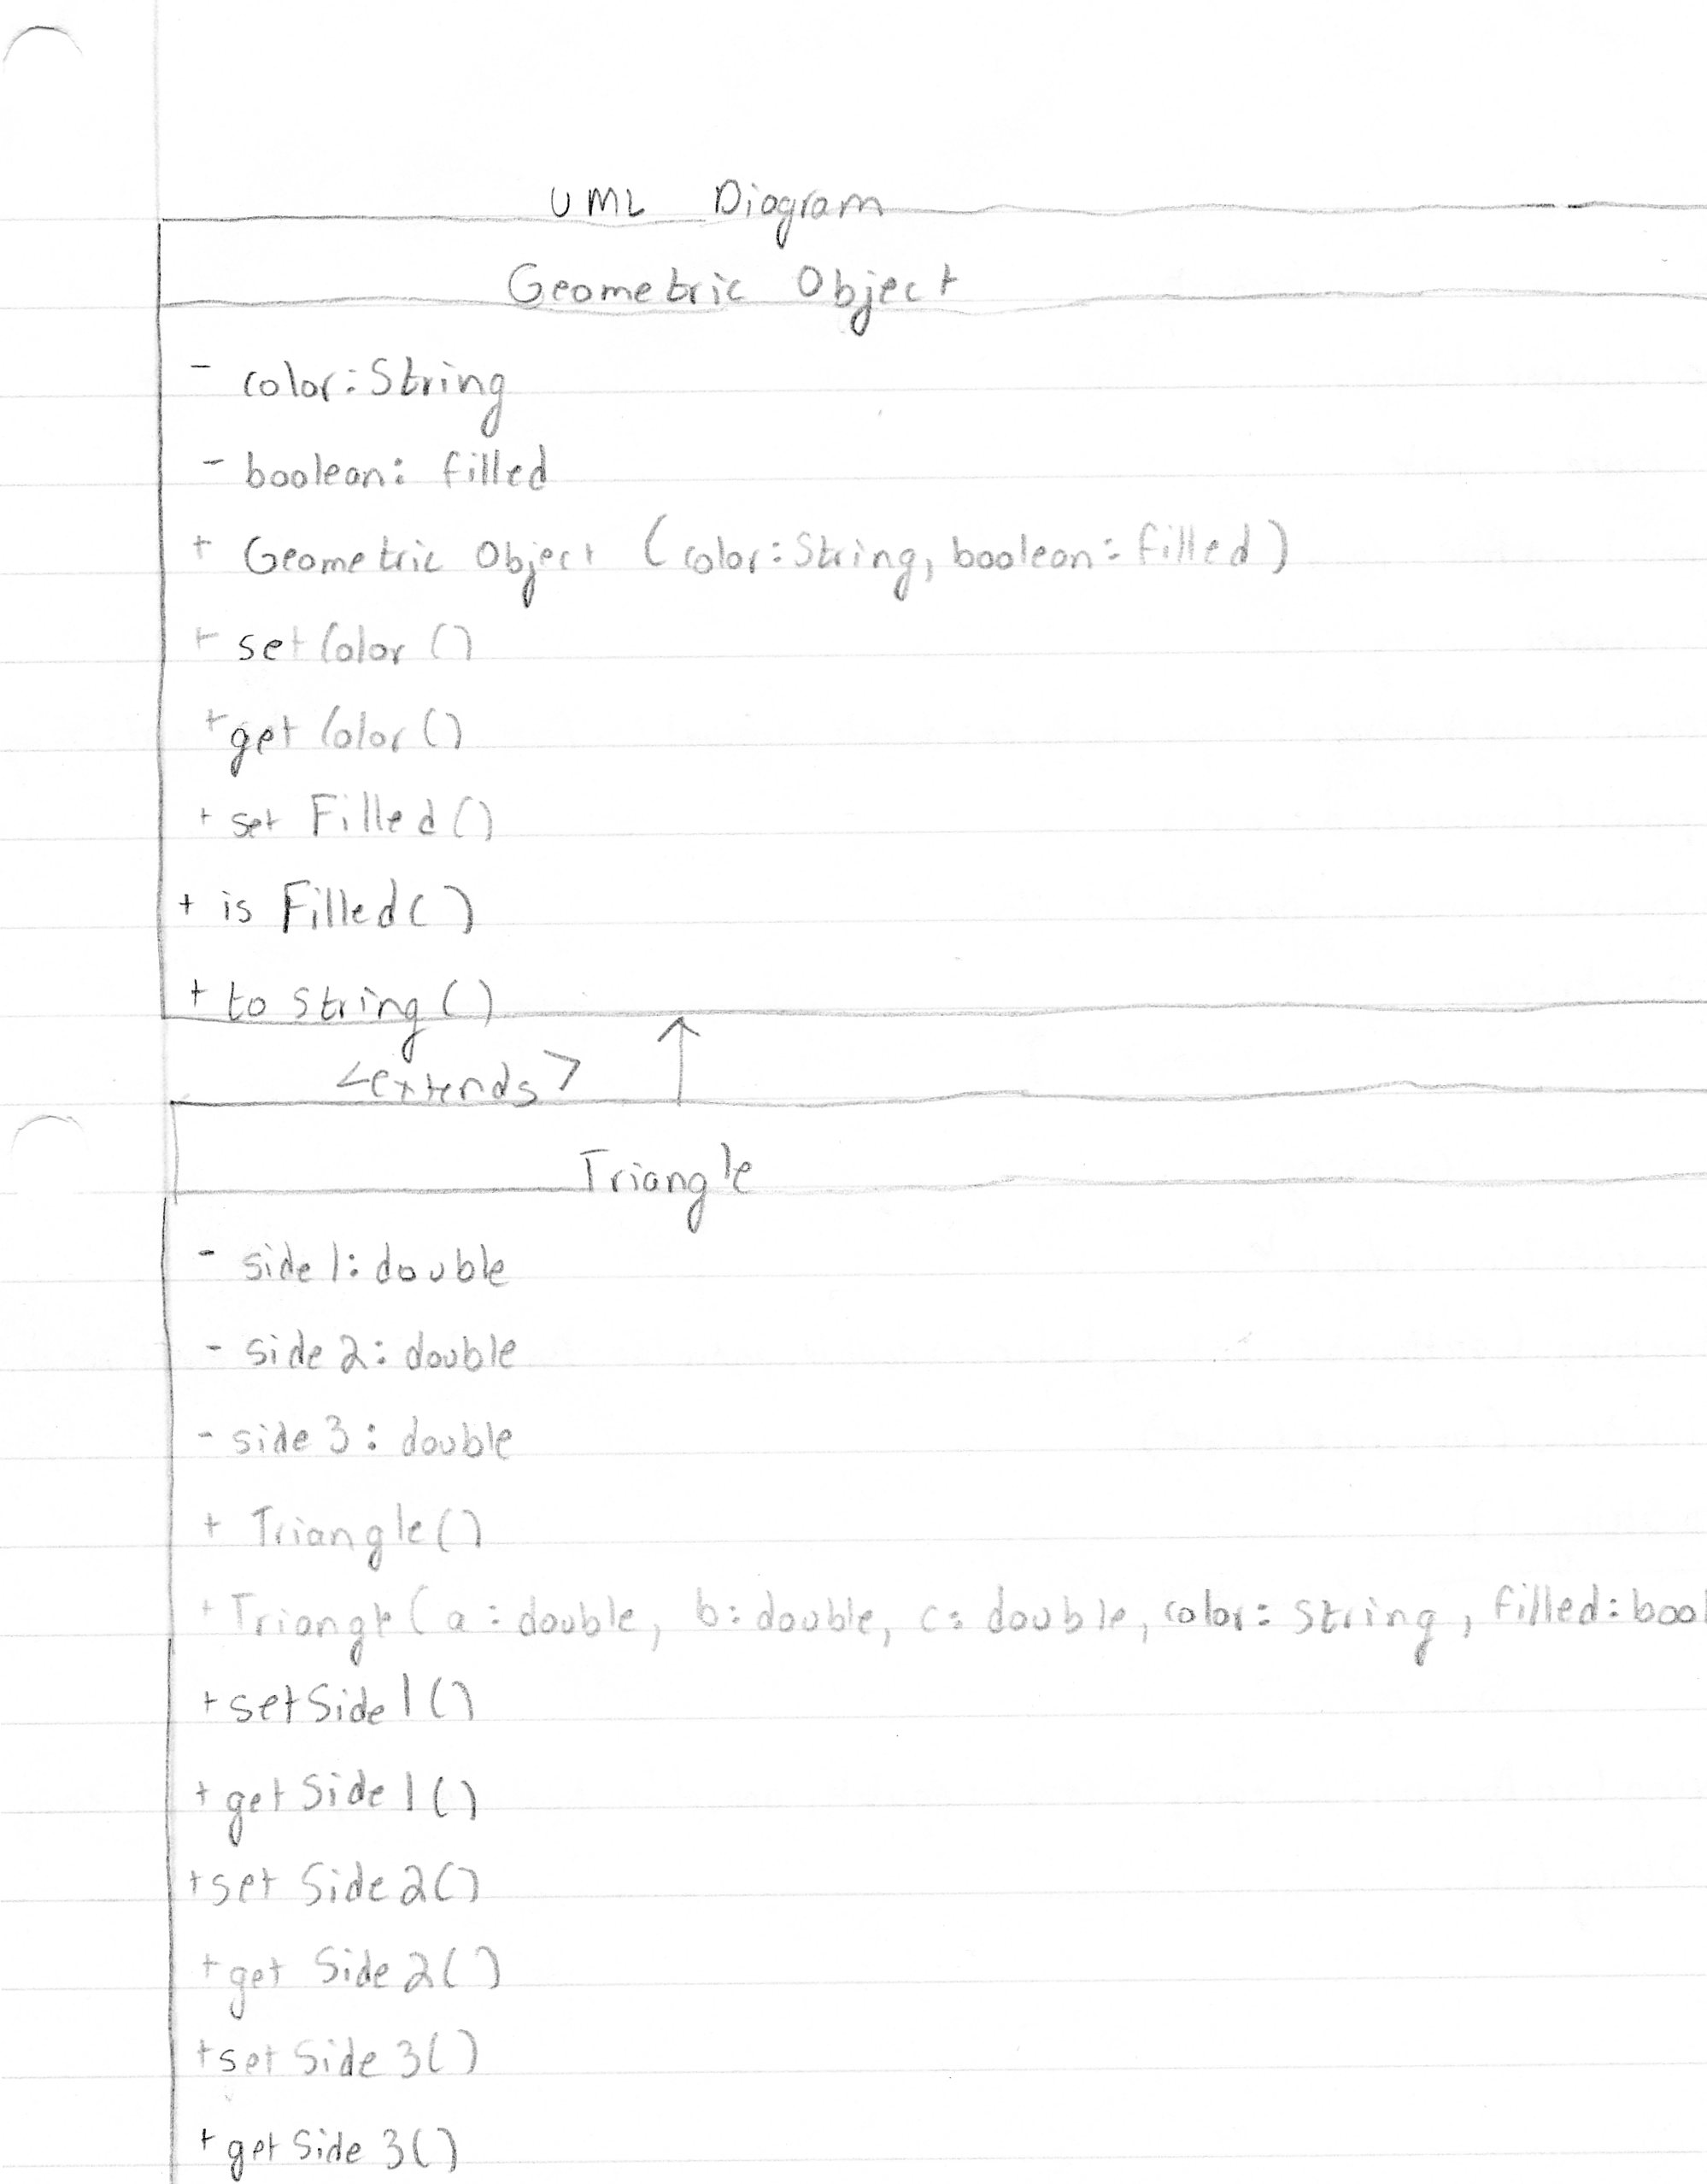 UML Diagram
Geometric Object
- color: String
- boolean: filled
+ Geometric Object (color: String, boolean: filled)
+ setColor()
+ getColor()
+ set Filled()
+ is Filled()
+ to String()
<extends>
Triangle
- side 1: double
- side 2: double
- side 3: double
+ Triangle()
+ Triangle(a: double, b: double, c: double, color: String, filled: bool
+ setSide1()
+ getSide1()
+ set Side2()
+ get Side2()
+ set Side3()
+ get Side3()